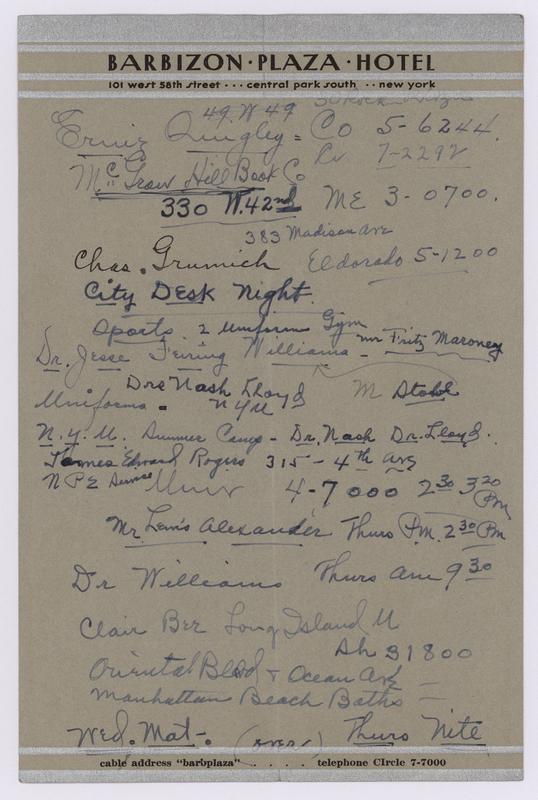 BARBIZON · PLAZA · HOTEL
101 west 58th street · · · central park south · · new york
49 W 49
Ernie Quigley = Co 5-6244.
7-2292
McGraw Hill Book Co
330 W. 42nd ME 3-0700.
383 Madison Ave
Chas. Grumich Eldorado 5-1200
City Desk Night.
Sports 2 Uniforms Gym
Mr Fritz Maroney
Dr. Jesse Feiring Williams -
Drs Nash Lloyd
Uniforms - NYU
N.Y.U. Summer Camp - Dr. Nash Dr. Lloyd.
Thomas Edward Rogers 315 - 4th Ave
NPE
4-7000 2 30 3 20 PM
Mr. Lewis Alexander Thurs P.M. 2 30 Pm
Dr Williams Thurs am 9 30
Clair Bee Long Island U
Sh 31800
Oriental Blvd + Ocean Ave
Manhattan Beach Baths -
Wed. Mat -. (over) Thurs Nite
cable address "barbplaza" . . . . . telephone CIrcle 7-7000